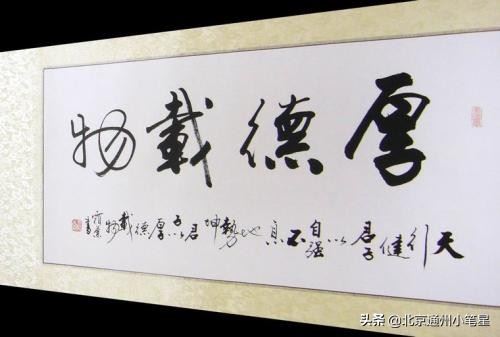 厚德載物
天行健君子以自强不息地勢坤君子以厚德載物
头条 @北京通州小笔星